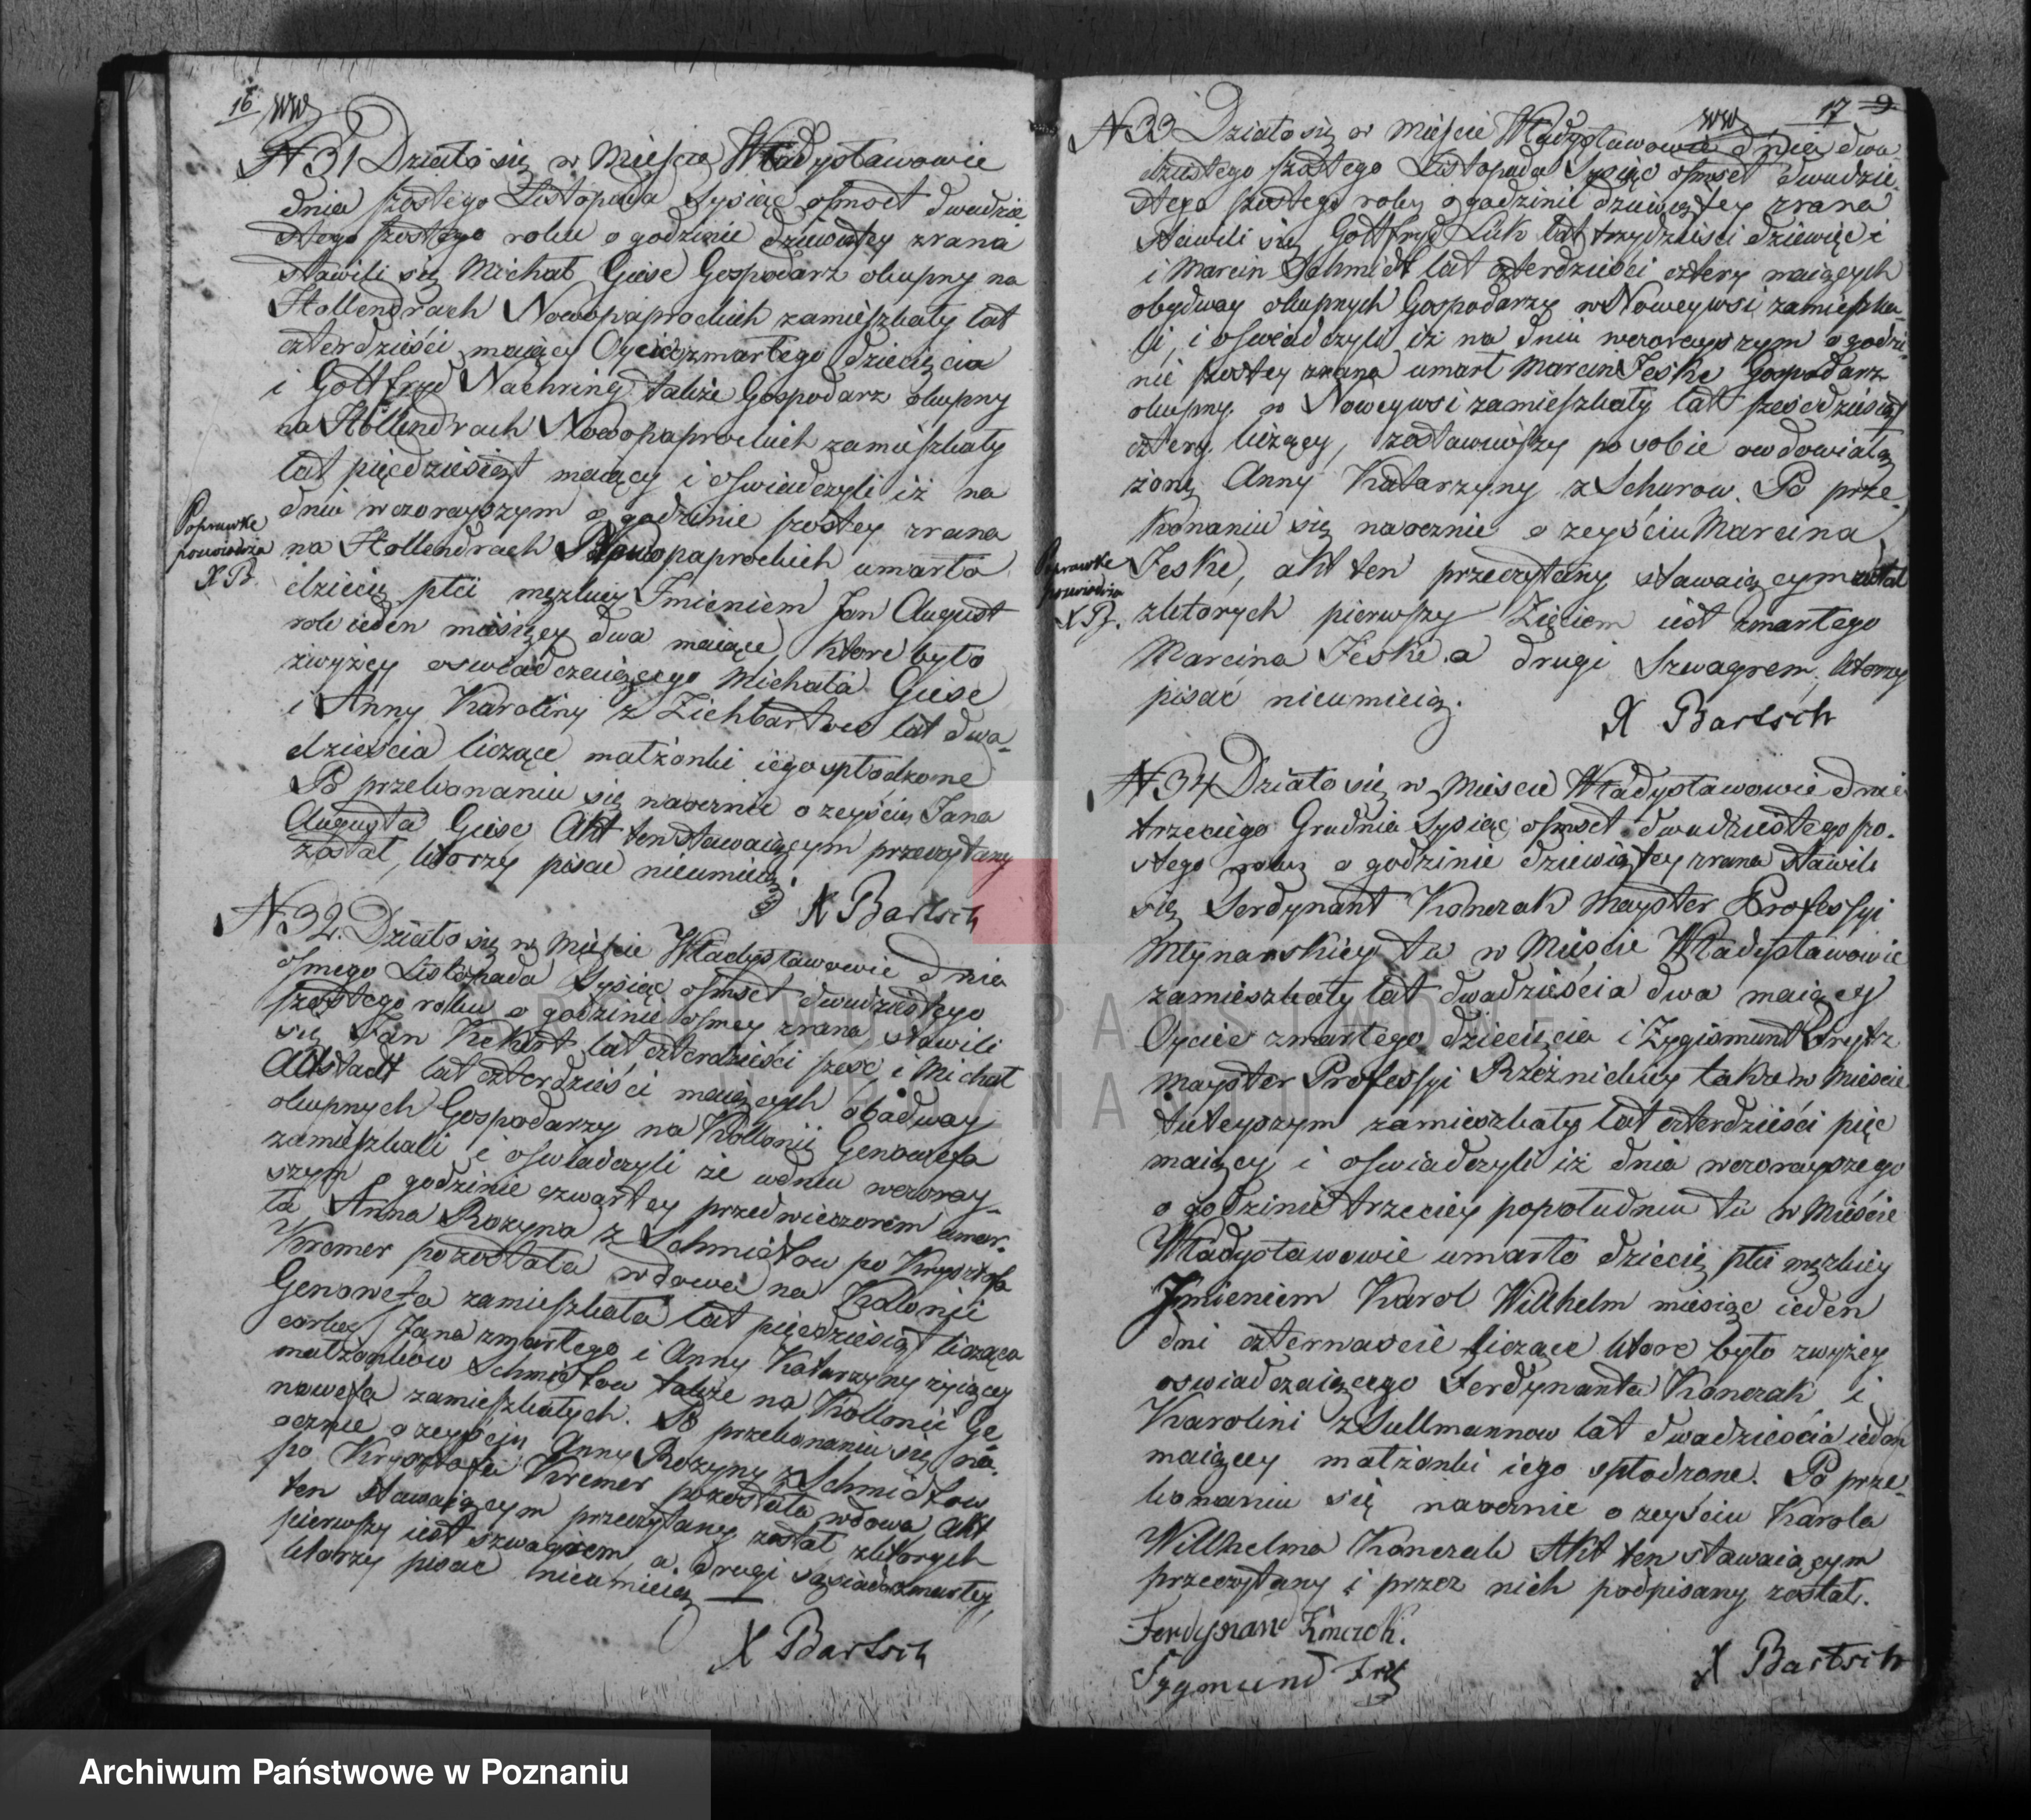 16
N 31 Działo się w Mieście Władysławowie
dnia szostego Listopada tysiąc ośmset dwudzie
stego szostego roku o godzinie dziewiątey zrana
stawili się Michał Giese Gospodarz okupny na
Hollendrach Nowopaprockich zamieszkały lat
czterdzieści maiący Oyciec zmarłego dziecięcia
i Gottfryd Naehring także Gospodarz okupny
na Hollendrach Nowopaprockich zamieszkały
lat pięcdziesiąt maiący i oświadczyli iż na
dniu wczorayszym o godzinie szostey zrana
na Hollendrach Nowopaprockich umarło
dziecię płci męzkiey Imieniem Jan August
rok ieden miesięcy dwa maiące, ktore było
zwyżey oswiadczaiącego Michała Giese
i Anny Karoliny z Zichbartow lat dwa-
dzieścia liczące małżonki iego spłodzone
Po przekonaniu się naocznie o zeyściu Jana
Augusta Giese, Akt ten stawaiącym przeczytany
został, ktorzy pisać nieumieią.
X Bartsch
Poprawke
poswiadcza
X B.
N 32. Działo się w Mieście Władysławowie dnia
osmego Listopada tysiąc ośmset dwudziestego
szostego roku o godzinie osmey zrana stawili
się Jan Kekert lat czterdzieści szesc i Michał
Altstadt lat czterdzieści maiących obadway
okupnych Gospodarzy na Kollonii Genowefa
zamieszkali i oświadczyli że wdniu wczoray-
szym o godzinie czwartey przedwieczorem umar-
ła Anna Rozyna z Schmidtow po Krysztofie
Kremer pozostała wdowa na Kolonii
Genowefa zamieszkała lat pięcdziesiąt licząca
corka Jana zmarłego i Anny Katarzyny żyiącey
małżonkow Schmidtow także na Kollonii Ge
nowefa zamieszkałych. Po przekonaniu się na-
ocznie o zeyściu Anny Rozyny z Schmidtow
po Krysztofie Kremer pozostała wdowa, Akt
ten stawaiącym przeczytany został zktorych
pierwszy iest szwagrem, a drugi sąsiad zmarłey,
ktorzy pisac nieumieią
X Bartsch
17 9
N 33 Działo się w Mieście Władysławowie dnia dwu
dziestego szostego Listopada tysiąc ośmset dwudzie-
stego szostego roku o godzinie dziewiątey zrana
stawili się Gottfryd Luk lat trzydzieści dziewięć
i Marcin Schmidt lat czterdzieści cztery maiących
obydway okupnych Gospodarzy w Noweywsi zamieszka-
li, i oświadczyli iż na dniu wczorayszym o godzi-
nie szostey zrana umarł Marcin Jeske Gospodarz
okupny w Noweywsi zamieszkały lat szescdziesiąt
cztery liczący, zostawiwszy po sobie owdowiałą
żonę Anny Katarzyny z Schurow. Po prze-
konaniu się naocznie o zeyściu Marcina
Jeske, akt ten przeczytany stawaiącym został
zktorych pierwszy Zięciem iest zmarłego
Marcina Jeske a drugi Szwagrem, ktorzy
pisać nieumieią.
X Bartsch
Poprawke
poswiadcza
X B.
N 34 Działo się w Mieście Władysławowie dnia
trzeciego Grudnia tysiąc ośmset dwudziestego szo-
stego roku o godzinie dziewiątey zrana stawili
się Ferdynant Konczak Mayster Professyi
Młynarskiey tu w Mieście Władysławowie
zamieszkały lat dwadzieścia dwa maiący
Oyciec zmarłego dziecięcia i Zygismunt Frytz
Mayster Professyi Rzeżnickiey także w Mieście
tuteyszym zamieszkały lat czterdzieści pięć
maiący i oswiadczyli iż dnia wczorayszego
o godzinie trzeciey popołudniu tu w Mieście
Władysławowie umarło dziecię płci męzkiey
Imieniem Karol Willhelm miesiąc ieden
dni czternascie liczące ktore było zwyżey
oswiadczaiącego Ferdynanta Konczak i
Karolini z Sullmannow lat dwadzieścia ieden
maiącey małżonki iego spłodzone. Po prze-
konaniu się naocznie o zeyściu Karola
Willhelma Konczak Akt ten stawaiącym
przeczytany i przez nich podpisany został.
Ferdynand Konczak.
Sygmund Fritz
X Bartsch
ARCHIWUM PAŃSTWOWE
W POZNANIU
Archiwum Państwowe w Poznaniu